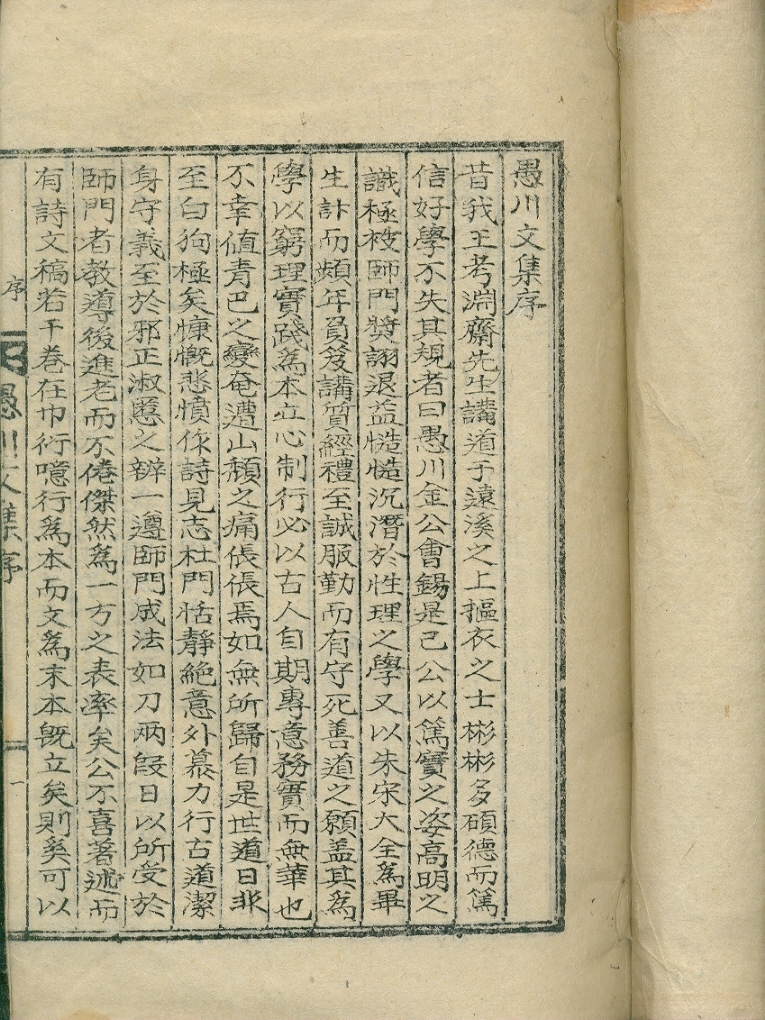 愚川文集序
昔我王考淵齋先生講道于遠溪之上摳衣之士彬彬多碩德而篤
信好學不失其規者曰愚川金公會錫是已公以篤實之姿高明之
識極被師門獎詡退益慥慥沉潛於性理之學又以朱宋大全爲畢
生計而頻年負笈講質經禮至誠服勤而有守死善道之願盖其爲
學以窮理實踐爲本立心制行必以古人自期專意務實而無華也
不幸値青巴之變奄遭山頹之痛倀倀焉如無所歸自是世道日非
至白狗極矣慷慨悲憤作詩見志杜門恬靜絶意外慕力行古道潔
身守義至於邪正淑慝之辨一遵師門成法如刀兩段日以所受於
師門者教導後進老而不倦傑然爲一方之表率矣公不喜著述而
有詩文稿若干卷在巾衍噫行爲本而文爲末本旣立矣則奚可以
序
愚川文集序
一